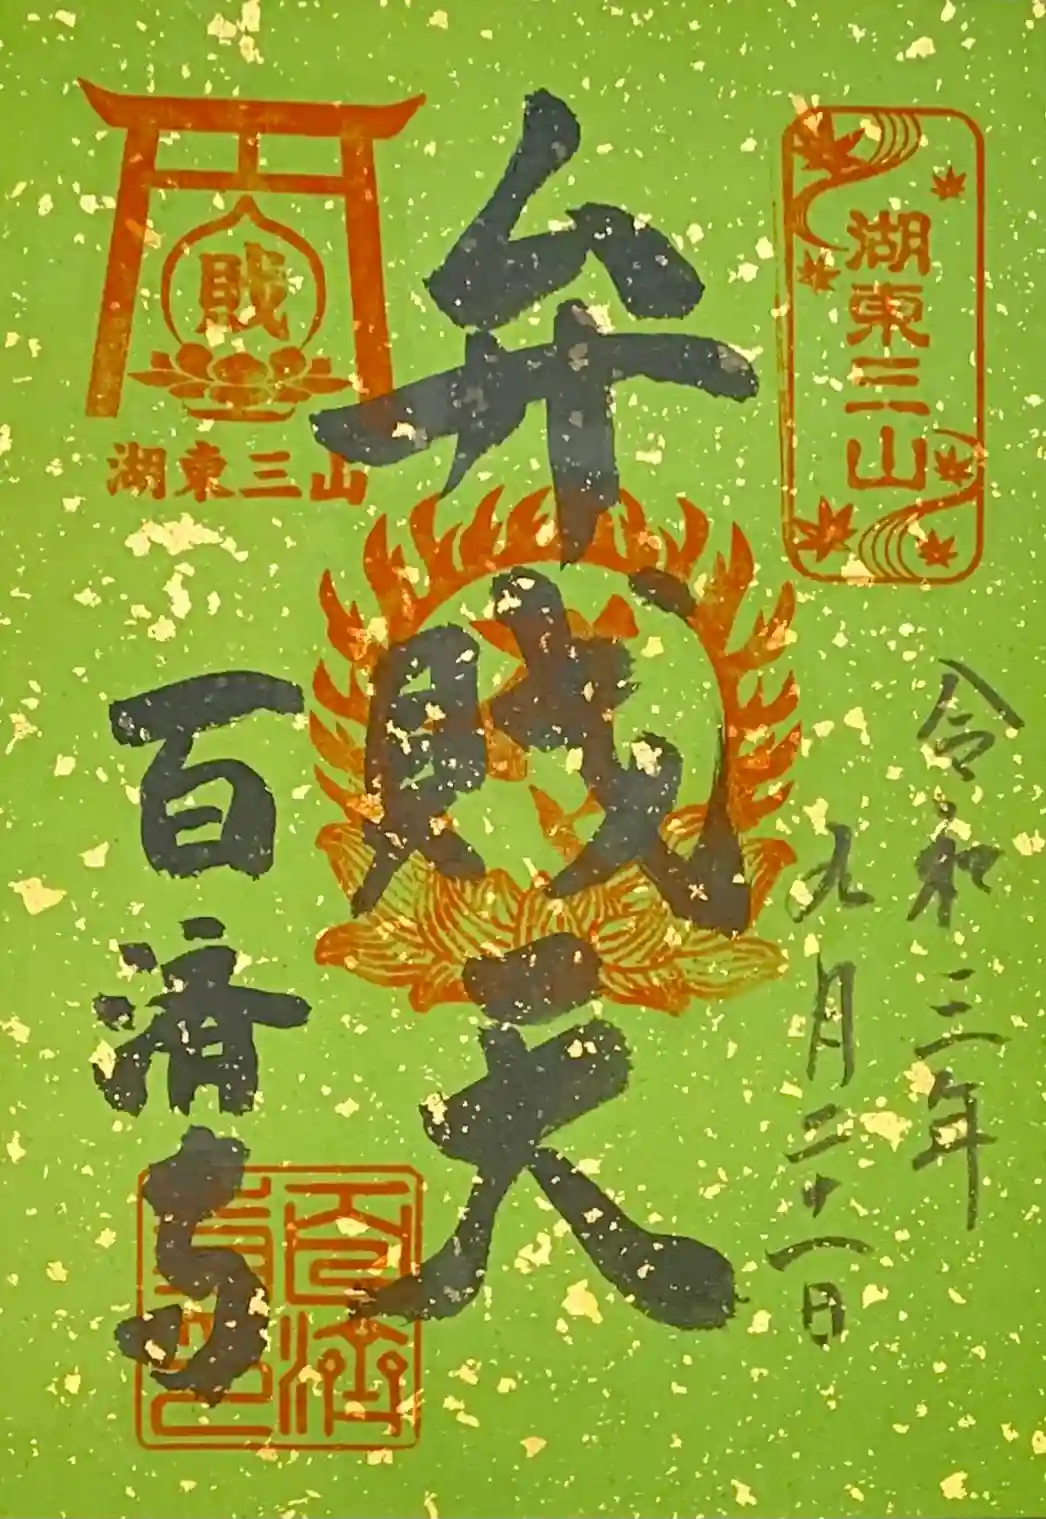 湖東三山
令和三年
九月二十一日
弁財天
財
湖東三山
百済寺